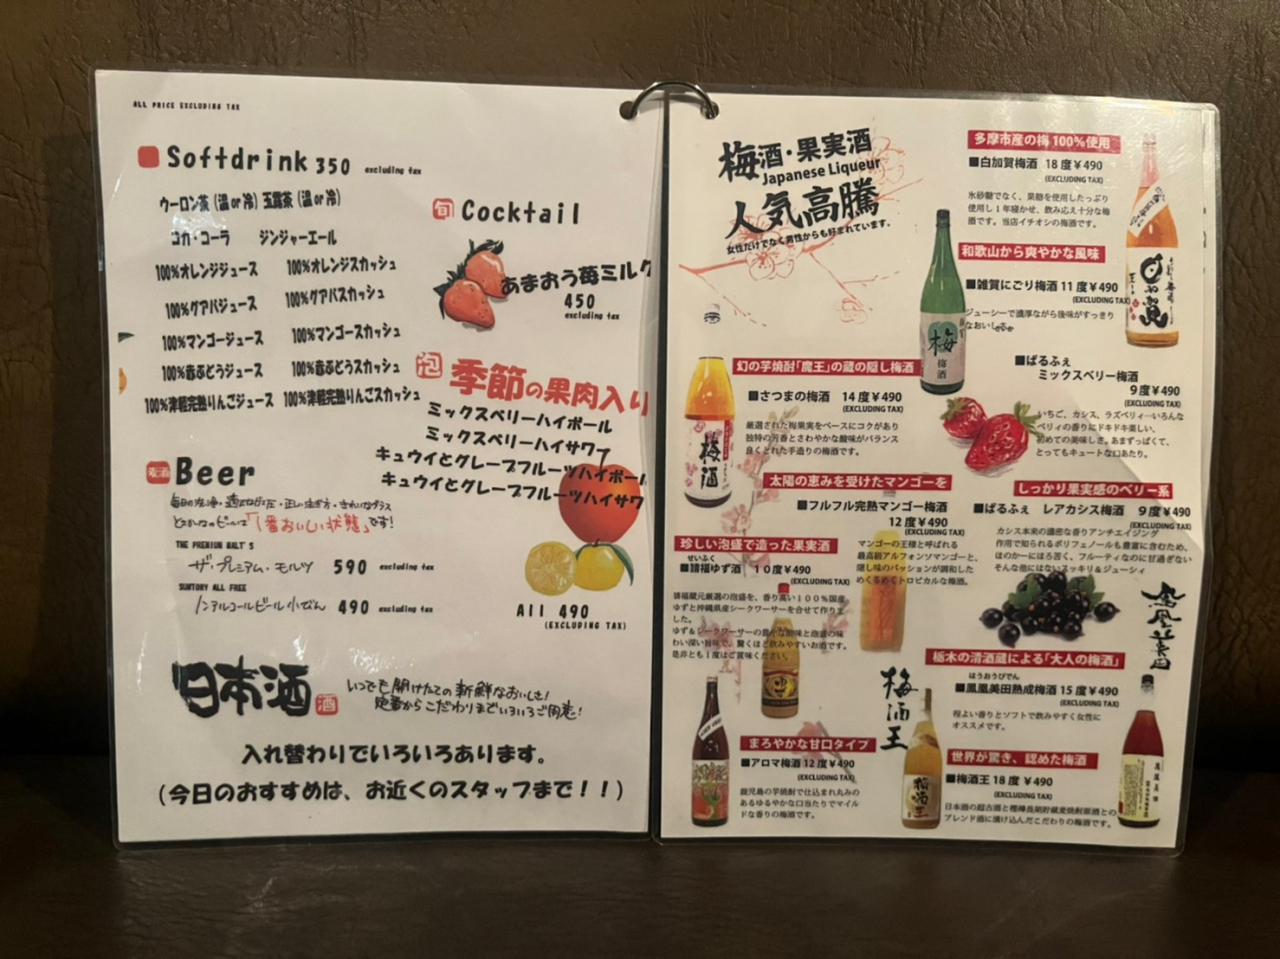 ALL PRICE EXCLUDING TAX
Softdrink 350 excluding tax
ウーロン茶(温or冷) 玉露茶(温or冷)
コカ・コーラ ジンジャーエール
100%オレンジジュース 100%オレンジスカッシュ
100%グアバジュース 100%グアバスカッシュ
100%マンゴージュース 100%マンゴースカッシュ
100%赤ぶどうジュース 100%赤ぶどうスカッシュ
100%津軽完熟りんごジュース 100%津軽完熟りんごスカッシュ
麦酒 Beer
「1番おいしい状態」です!
THE PREMIUM MALT'S
ザ・プレミアム・モルツ 590 excluding tax
SUNTORY ALL FREE
ノンアルコールビール小びん 490 excluding tax
旬 Cocktail
あまおう苺ミルク
450
excluding tax
泡 季節の果肉入り
ミックスベリーハイボール
ミックスベリーハイサワー
キュウイとグレープフルーツハイボール
キュウイとグレープフルーツハイサワ
All 490
(EXCLUDING TAX)
日本酒 酒
いつでも開けたての新鮮なおいしさ!
定番からこだわりまでいろいろご用意!
入れ替わりでいろいろあります。
(今日のおすすめは、お近くのスタッフまで!!)
梅酒・果実酒
Japanese Liqueur
人気高騰
女性だけでなく男性からも好まれています。
多摩市産の梅100%使用
■白加賀梅酒 18度¥490
(EXCLUDING TAX)
氷砂糖でなく、果糖を使用したっぷり
使用し1年寝かせ、飲み応え十分な梅
酒です。当店イチオシの梅酒です。
和歌山から爽やかな風味
■雑賀にごり梅酒 11度¥490
(EXCLUDING TAX)
ジューシーで濃厚ながら後味がすっきり
なおいしさ
■ぱるふぇ
ミックスベリー梅酒
9度¥490
(EXCLUDING TAX)
いちご、カシス、ラズベリィ…いろんな
ベリィの香りにドキドキ楽しい、
初めての美味しさ。あまずっぱくて、
とってもキュートな口あたり。
幻の芋焼酎「魔王」の蔵の隠し梅酒
■さつまの梅酒 14度¥490
(EXCLUDING TAX)
厳選された梅果実をベースにコクがあり
独特の芳香とさわやかな酸味がバランス
良くとれた手造りの梅酒です。
太陽の恵みを受けたマンゴーを
■フルフル完熟マンゴー梅酒
12度¥490
(EXCLUDING TAX)
マンゴーの王様と呼ばれる
最高級アルフォンソマンゴーと、
隠し味のパッションが調和した
めくるめくトロピカルな梅酒。
しっかり果実感のベリー系
■ぱるふぇ レアカシス梅酒 9度¥490
(EXCLUDING TAX)
カシス本来の濃密な香りアンチエイジング
作用で知られるポリフェノールも豊富に含むため、
ほのかーにほろ苦く、フルーティなのに甘過ぎない
そんな他にはないスッキリ&ジューシィ
珍しい泡盛で造った果実酒
せいふく
■請福ゆず酒 10度¥490
(EXCLUDING TAX)
請福蔵元厳選の泡盛を、香り高い100%国産
ゆずと沖縄県産シークワーサーを合せて作りま
した。
ゆず&シークワーサーの豊かな酸味と泡盛の味
わい深い旨味で、驚くほど飲みやすいお酒です。
是非とも1度はご賞味ください。
栃木の清酒蔵による「大人の梅酒」
ほうおうびでん
■鳳凰美田熟成梅酒 15度¥490
(EXCLUDING TAX)
程よい香りとソフトで飲みやすく女性に
オススメです。
鳳凰美田
梅酒王
まろやかな甘口タイプ
■アロマ梅酒 12度¥490
(EXCLUDING TAX)
鹿児島の芋焼酎で仕込まれ丸みの
あるゆるやかな口当たりでマイル
ドな香りの梅酒です。
世界が驚き、認めた梅酒
■梅酒王 18度 ¥490
(EXCLUDING TAX)
日本酒の超古酒と樫樽長期貯蔵麦焼酎原酒との
ブレンド酒に漬け込んだこだわりの梅酒です。